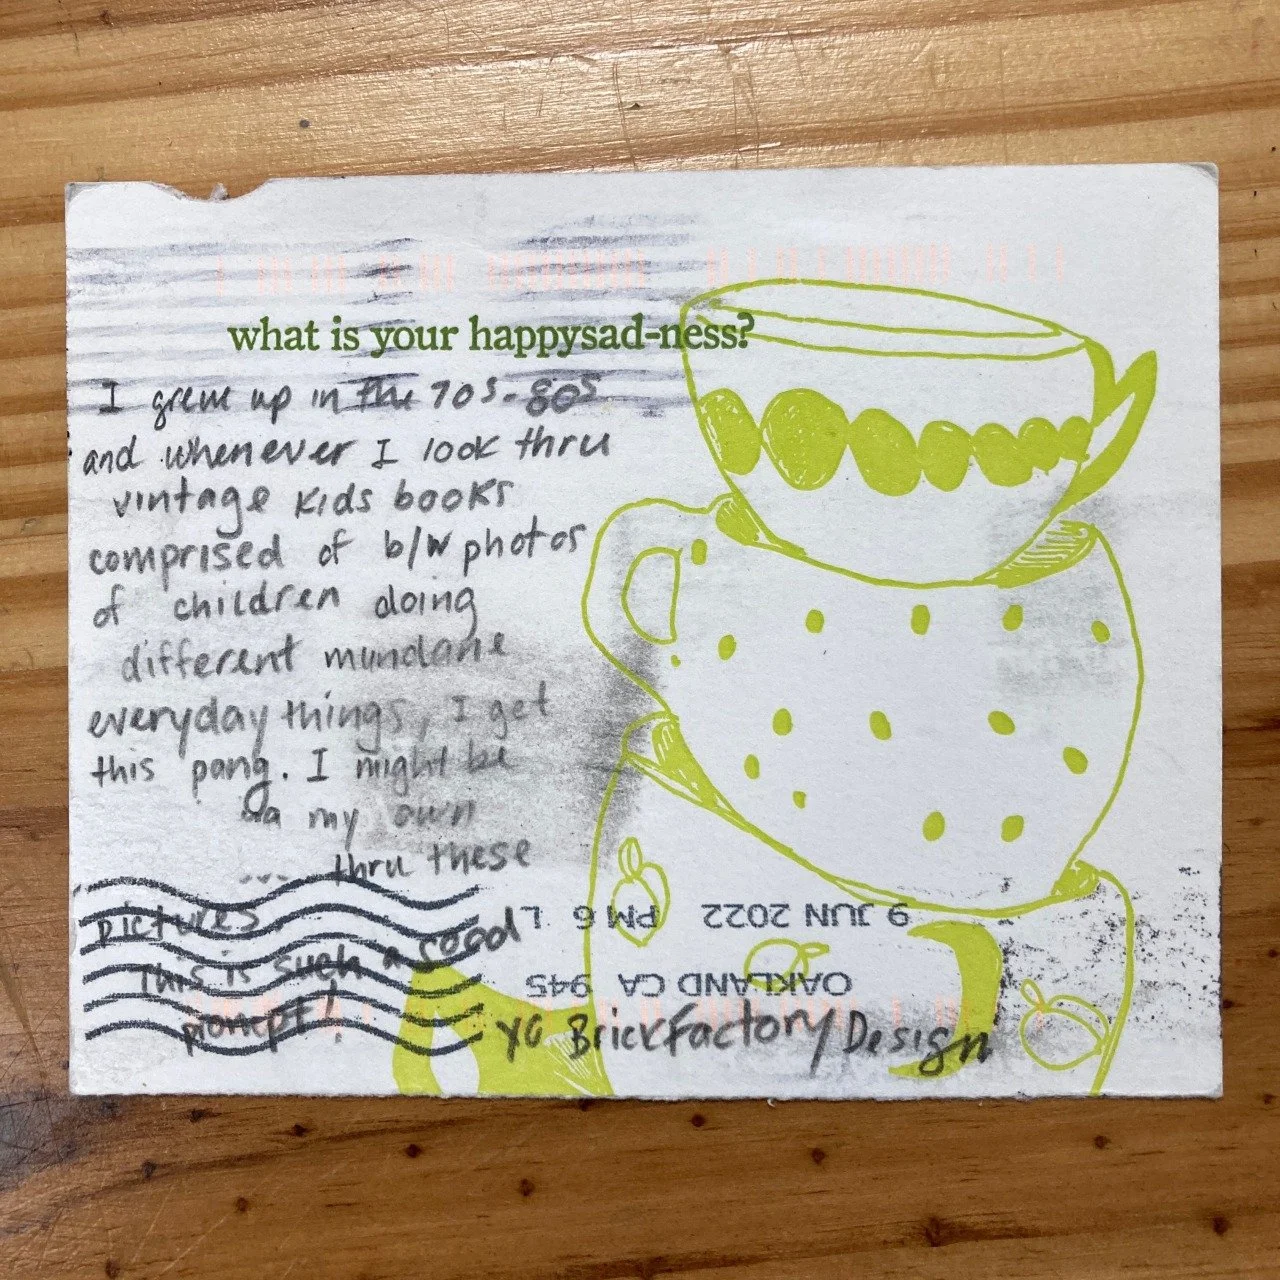 what is your happysad-ness?
I grew up in the 70s-80s
and whenever I look thru
vintage kids books
comprised of b/w photos
of children doing
different mundane
everyday things, I get
this pang. I might be
my own
thru these
pictures
This is such a good
prompt!
XO BrickFactory Design
9 JUN 2022 PM 6 L
OAKLAND CA 945